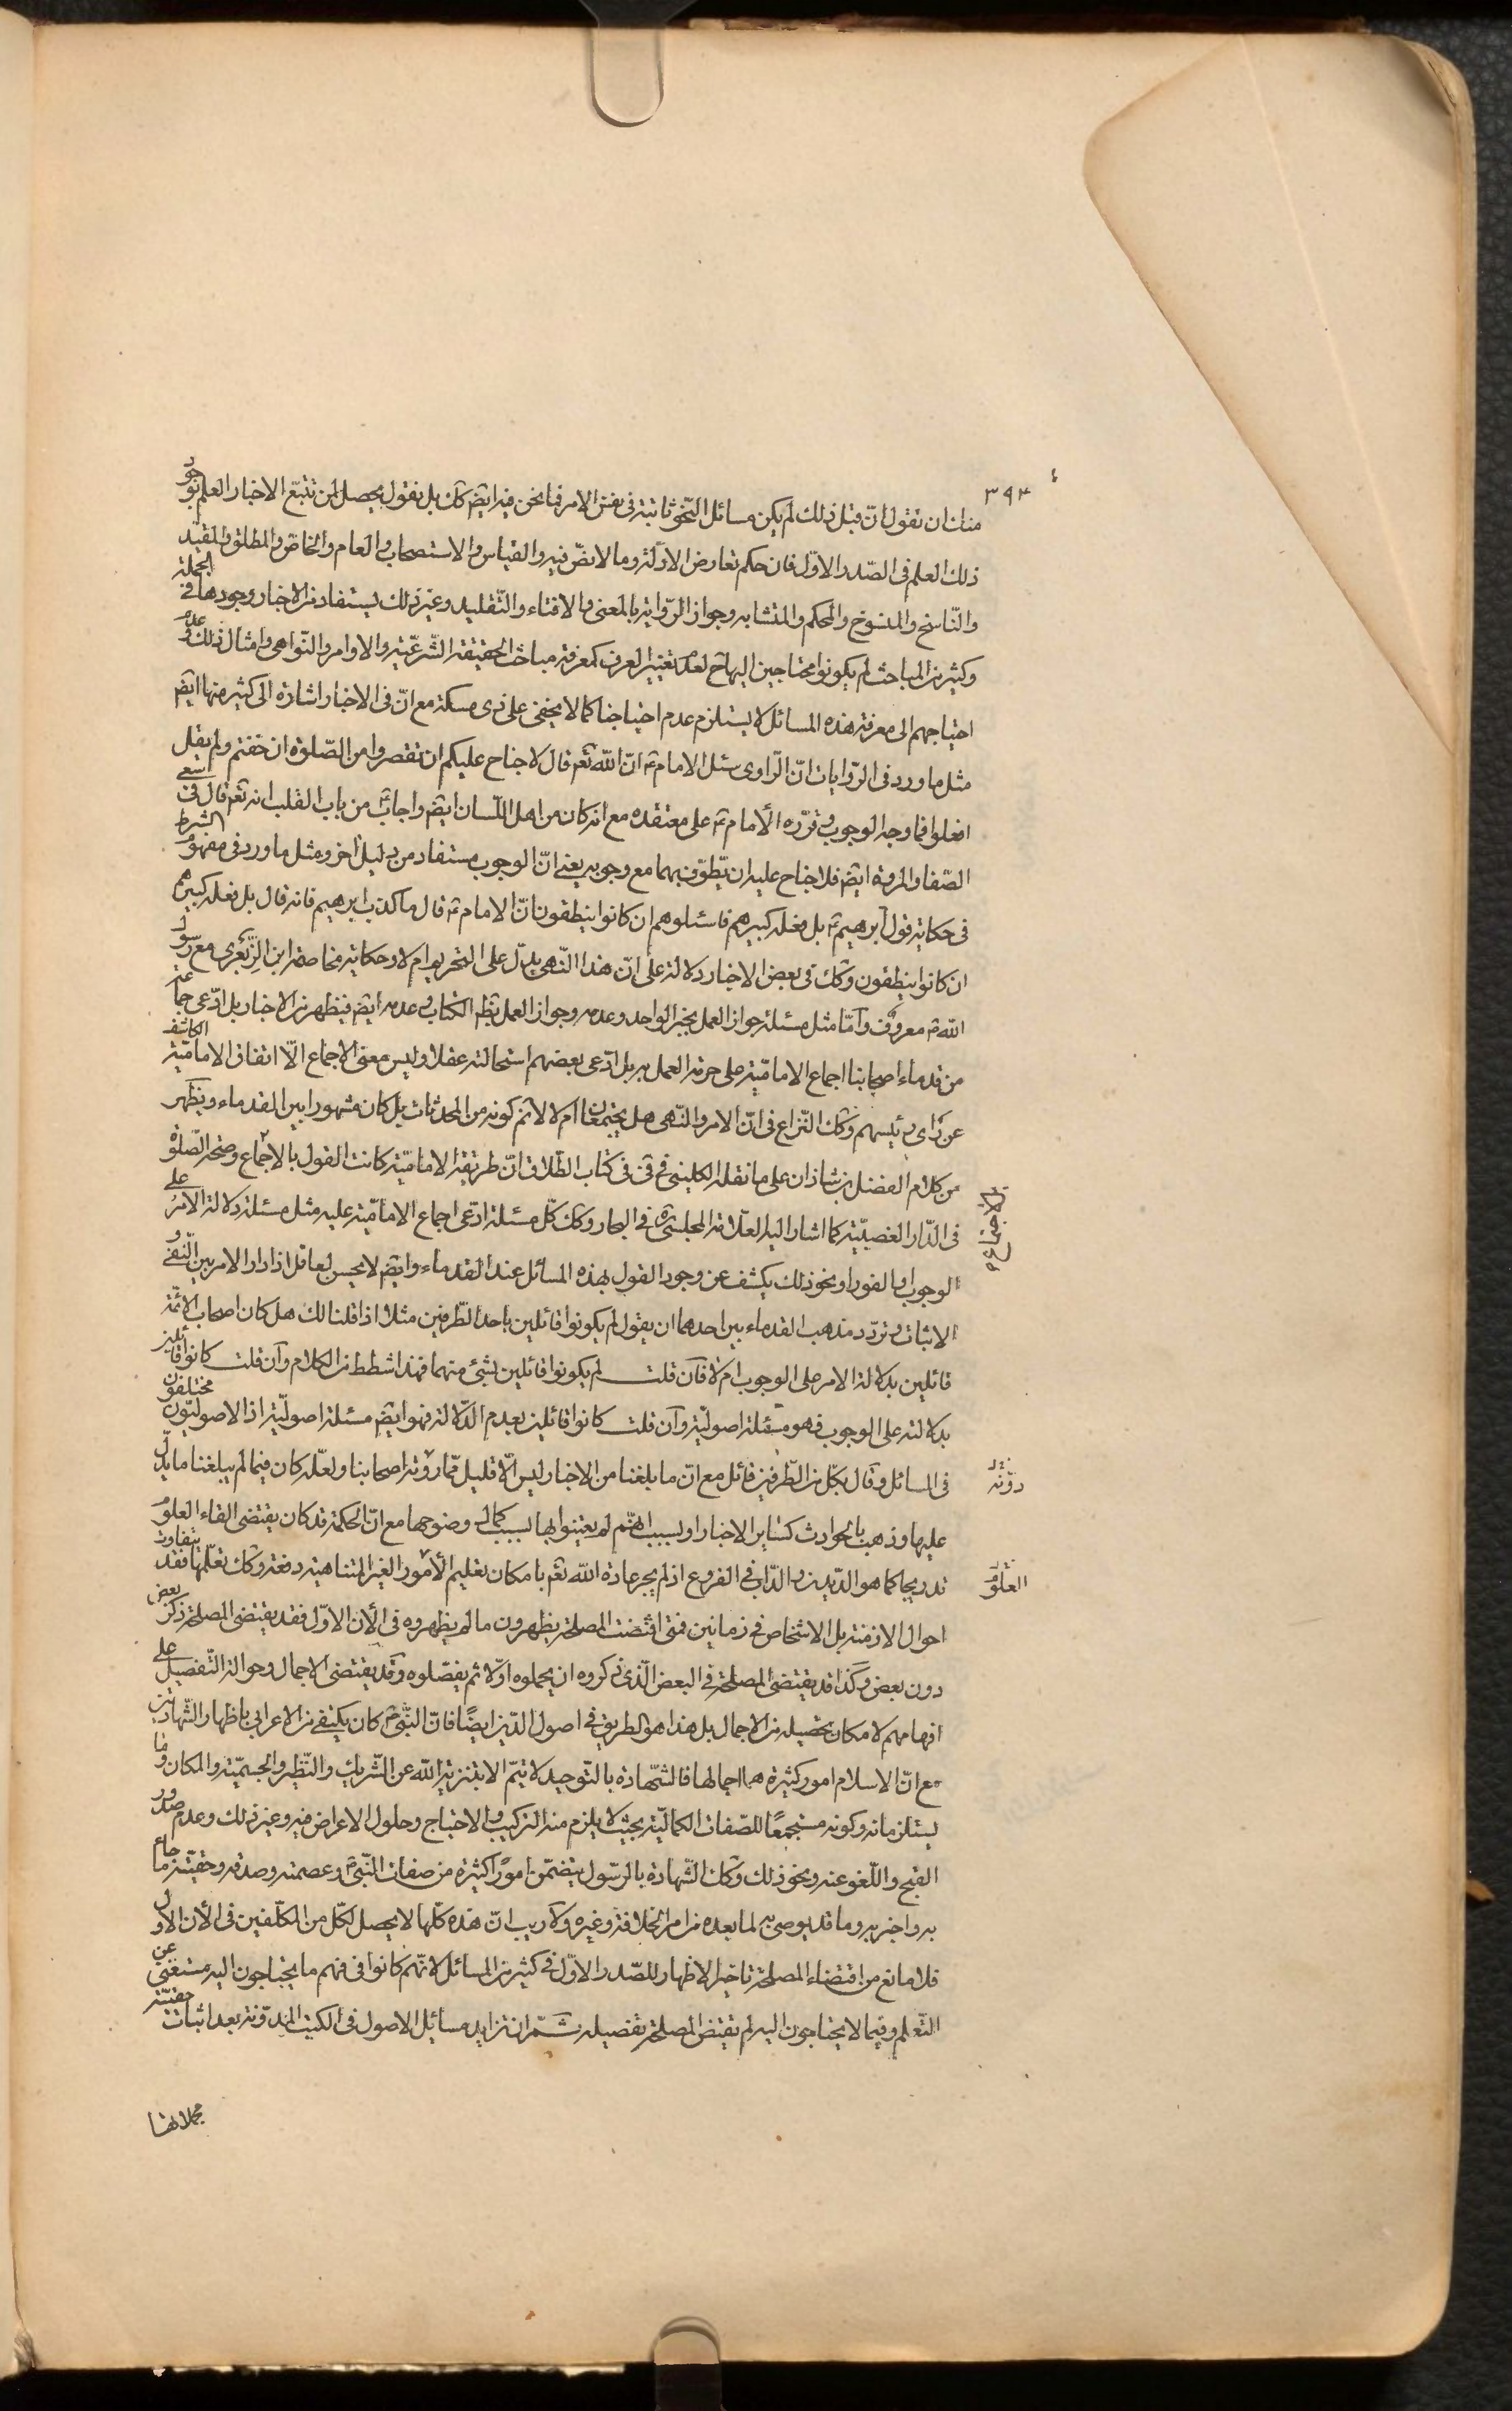 ٣٩٣
منك ان تقول انّ قبل ذلك لم يكن مسائل النّحو ثابتة فى نفس الامر فما نحن فيه ايضً كك بل نقول يحصل لمن تتبّع الاخبار العلم بوجود
ذلك العلم فى الصّدر الاوّل فان حكم تعارض الادلّة وما لا نصّ فيه والقياس والاستصحاب والعام والخاصّ والمطلق والمقيّد
والنّاسخ والمنسوخ والمحكم والمتشابه وجواز الرّواية بالمعنى والافتاء والتّقليد وغير ذلك يستفاد من الاخبار وجودها فى الجملة
وكثير من المباحث لم يكونوا محتاجين اليها ح لعدم تغيير العرف كمعرفة مباحث الحقيقة الشّرعيّة والاوامر والنّواهى وامثال ذلك وعدم
احتياجهم الى معرفة هذه المسائل لا يستلزم عدم احتياجنا كما لا يخفى على ذى مسكة مع انّ فى الاخبار اشارة الى كثير منها ايضً
مثل ما ورد فى الرّوايات انّ الرّاوى سئل الامام ع انّ الله تعم قال لا جناح عليكم ان تقصروا من الصّلوة ان خفتم ولم يقل
افعلوا فما وجه الوجوب وقرّره الأمام ع على معتقده مع انه كان من اهل اللّسان ايضً واجاب ع من باب القلب انه تعم قال فى السعى
الصّفا والمروة ايضً فلا جناح عليه ان يطّوّف بهما مع وجوبه يعنى انّ الوجوب مستفاد من دليل أخر ومثل ما ورد فى مفهوم الشرط
فى حكاية قول ابرهيم ع بل فعله كبيرهم فاسئلوهم ان كانوا ينطقون انّ الامام ع قال ما كذب ابرهيم فانه قال بل فعله كبيرهم
ان كانوا ينطقون وكك فى بعض الاخبار دلالة على انّ هذا النّهى يدلّ على التحريم ام لا وحكاية مخاصمة ابن الزّبعرى مع رسول
الله ص معروف وامّا مثل مسئلة جواز العمل بخبر الواحد وعدمه وجواز العمل بظم الكتاب وعدمه ايضً فيظهر من الاخبار بل ادّعى جماعة
من قدماء اصحابنا اجماع الاماميّة على حرمة العمل به بل ادّعى بعضهم استحالته عقلا وليس معنى الاجماع الّا اتفاق الاماميّة الكاشف
عن رأى رئيسهم وكك النّزاع فى انّ الامر والنّهى هل يجتمعان ام لا لا نم كونه من المحدثات بل كان مشهورا بين القدماء ويظهر
من كلام الفضل بن شاذان على ما نقله الكلينى فى فى كتاب الطّلاق انّ طريقة الاماميّة كانت القول بالاجماع وصحة الصّلوة
فى الدّار الغصبيّة كما اشار اليه العلّامة المجلسى ره فى البحار وكك كلّ مسئلة ادّعى اجماع الاماميّة عليه مثل مسئلة دلالة الامر على
الوجوب او الفور او نحو ذلك يكشف عن وجود القول بهذه المسائل عند القدماء وايضً لا يحسن لعاقل اذا دار الامر بين النّفى و
الاثبات وتردّد مذهب القدماء بين احدهما ان يقول لم يكونوا قائلين باحد الطّرفين مثلا اذا قلنا لك هل كان اصحاب الائمّة
قائلين بدلالة الامر على الوجوب ام لا فان قلت لم يكونوا قائلين بشئ منهما فهذا شطط من الكلام وان قلت كانوا قائلين
بدلالته على الوجوب فهو مسئلة اصوليّة وان قلت كانوا قائلين بعدم الدّلالة فهو ايضً مسئلة اصوليّة اذ الاصوليّون مختلفون
فى المسائل وقال بكلّ من الطّرفين قائل مع انّ ما بلغنا من الاخبار ليس الّا قليل ممّا روته اصحابنا ولعلّه كان فيما لم يبلغنا ما يدلّ
دوّنه
عليها وذهب بالحوادث كساير الاخبار او لسبب انهم لم يعتنوا بها لسبب كمال وضوحها مع انّ الحكمة قد كان يقتضى القاء العلوم
تدريجا كما هو الدّيدن والدّاب فى الفروع اذ لم يجر عادة الله تعم بامكان تعليم الأمور الغير المتناهية دفعة وكك تعلّمها فقد يتفاوت
العلوم
احوال الازمنة بل الاشخاص فى زمانين فمتى اقتضت المصلحة يظهرون ما لم يظهروه فى الأن الاوّل فقد يقتضى المصلحة ذكر بعض
دون بعض وكذا قد يقتضى المصلحة فى البعض الّذى ذكروه ان يجملوه اوّلا ثم يفصّلوه وقد يقتضى الاجمال وحوالة التّفصيل على
افهامهم لامكان تحصيله من الاجمال بل هذا هو الطريق فى اصول الدّين ايضًا فانّ النبّى ص كان يكتفى من الاعرابى باظهار الشّهادتين
مع انّ الاسلام امور كثيرة هما اجمالها فالشّهادة بالتّوحيد لا يتمّ الا بتنزيه الله عن الشّريك والنّظير والجسميّة والمكان وما
يستلزمانه وكونه مستجمعًا للصّفات الكماليّة بحيث لا يلزم منه التركيب والاحتياج وحلول الاعراض فيه وغير ذلك وعدم صدور
القبح واللّغو عنه ونحو ذلك وكك الشّهادة بالرّسول يتضمّن امورًا كثيرة من صفات النّبّى ص وعصمته وصدقه وحقيّة ما جاء
به واخبر به وما قد يوصى به لما بعده من امر الخلافة وغيره ولا ريب انّ هذه كلّها لا يحصل لكلّ من المكلّفين فى الأن الاوّل
فلا مانع من اقتضاء المصلحة تاخير الاظهار للصّدر الاوّل فى كثير من المسائل لانّهم كانوا فى فهم ما يحتاجون اليه مستغنى عن
التّعلم وفيما لا يحتاجون اليه لم يقتض المصلحة تفصيله ثمّ ان تزايد مسائل الاصول فى الكتب المدوّنة بعد اثبات حقيّة
مجملاتها